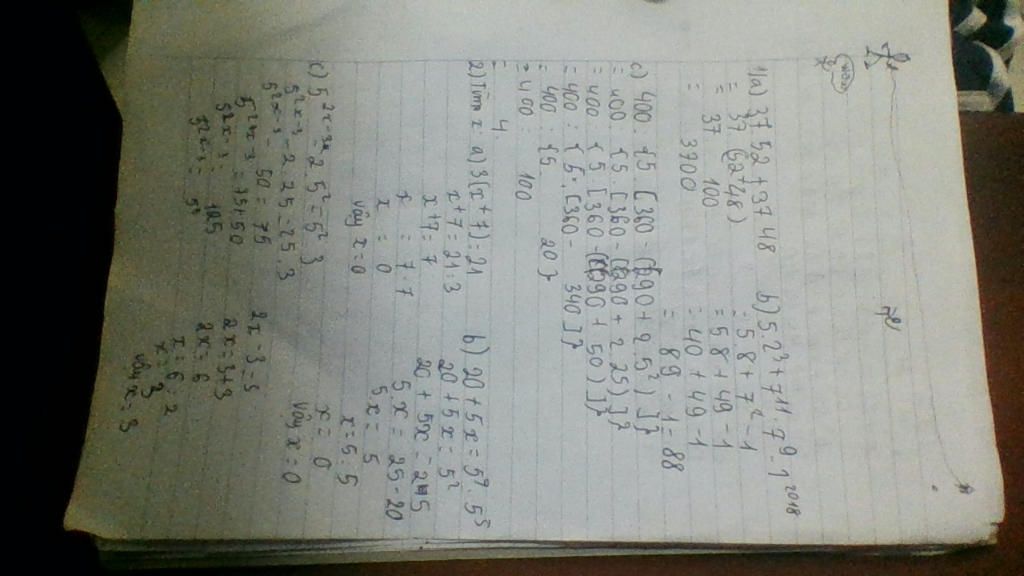 1) a) 37 52 + 37 48
= 37 (52+48)
= 37 100
= 3700
b) 5.2³ + 7¹¹ : 7⁹ - 1²⁰¹⁸
= 5.8 + 7² - 1
= 5 8 + 49 - 1
= 40 + 49 - 1
= 89 - 1 = 88
c) 400 : {5 [360 - (290 + 2.5²)]}
= 400 : {5 [360 - (290 + 2.25)]}
= 400 : {5 [360 - (290 + 50)]}
= 400 : {5. [360 - 340]}
= 400 : {5 20}
= 400 : 100
= 4
2) Tìm x: a) 3(x+7) = 21
x+7 = 21:3
x+7 = 7
x = 7 7
x = 0
Vậy x=0
b) 20 + 5x = 5⁷ : 5⁵
20 + 5x = 5²
20 + 5x = 25
5x = 25 - 20
5x = 5
x = 5 : 5
x = 0
Vậy x = 0
c) 5²ˣ⁻³ - 2.5² = 5² 3
5²ˣ⁻³ - 2 25 = 25.3
5²ˣ⁻³ - 50 = 75
5²ˣ⁻³ = 75+50
5²ˣ⁻³ = 125
5²ˣ⁻³ = 5³
2x - 3 = 3
2x = 3+3
2x = 6
x = 6 : 2
x = 3
Vậy x = 3